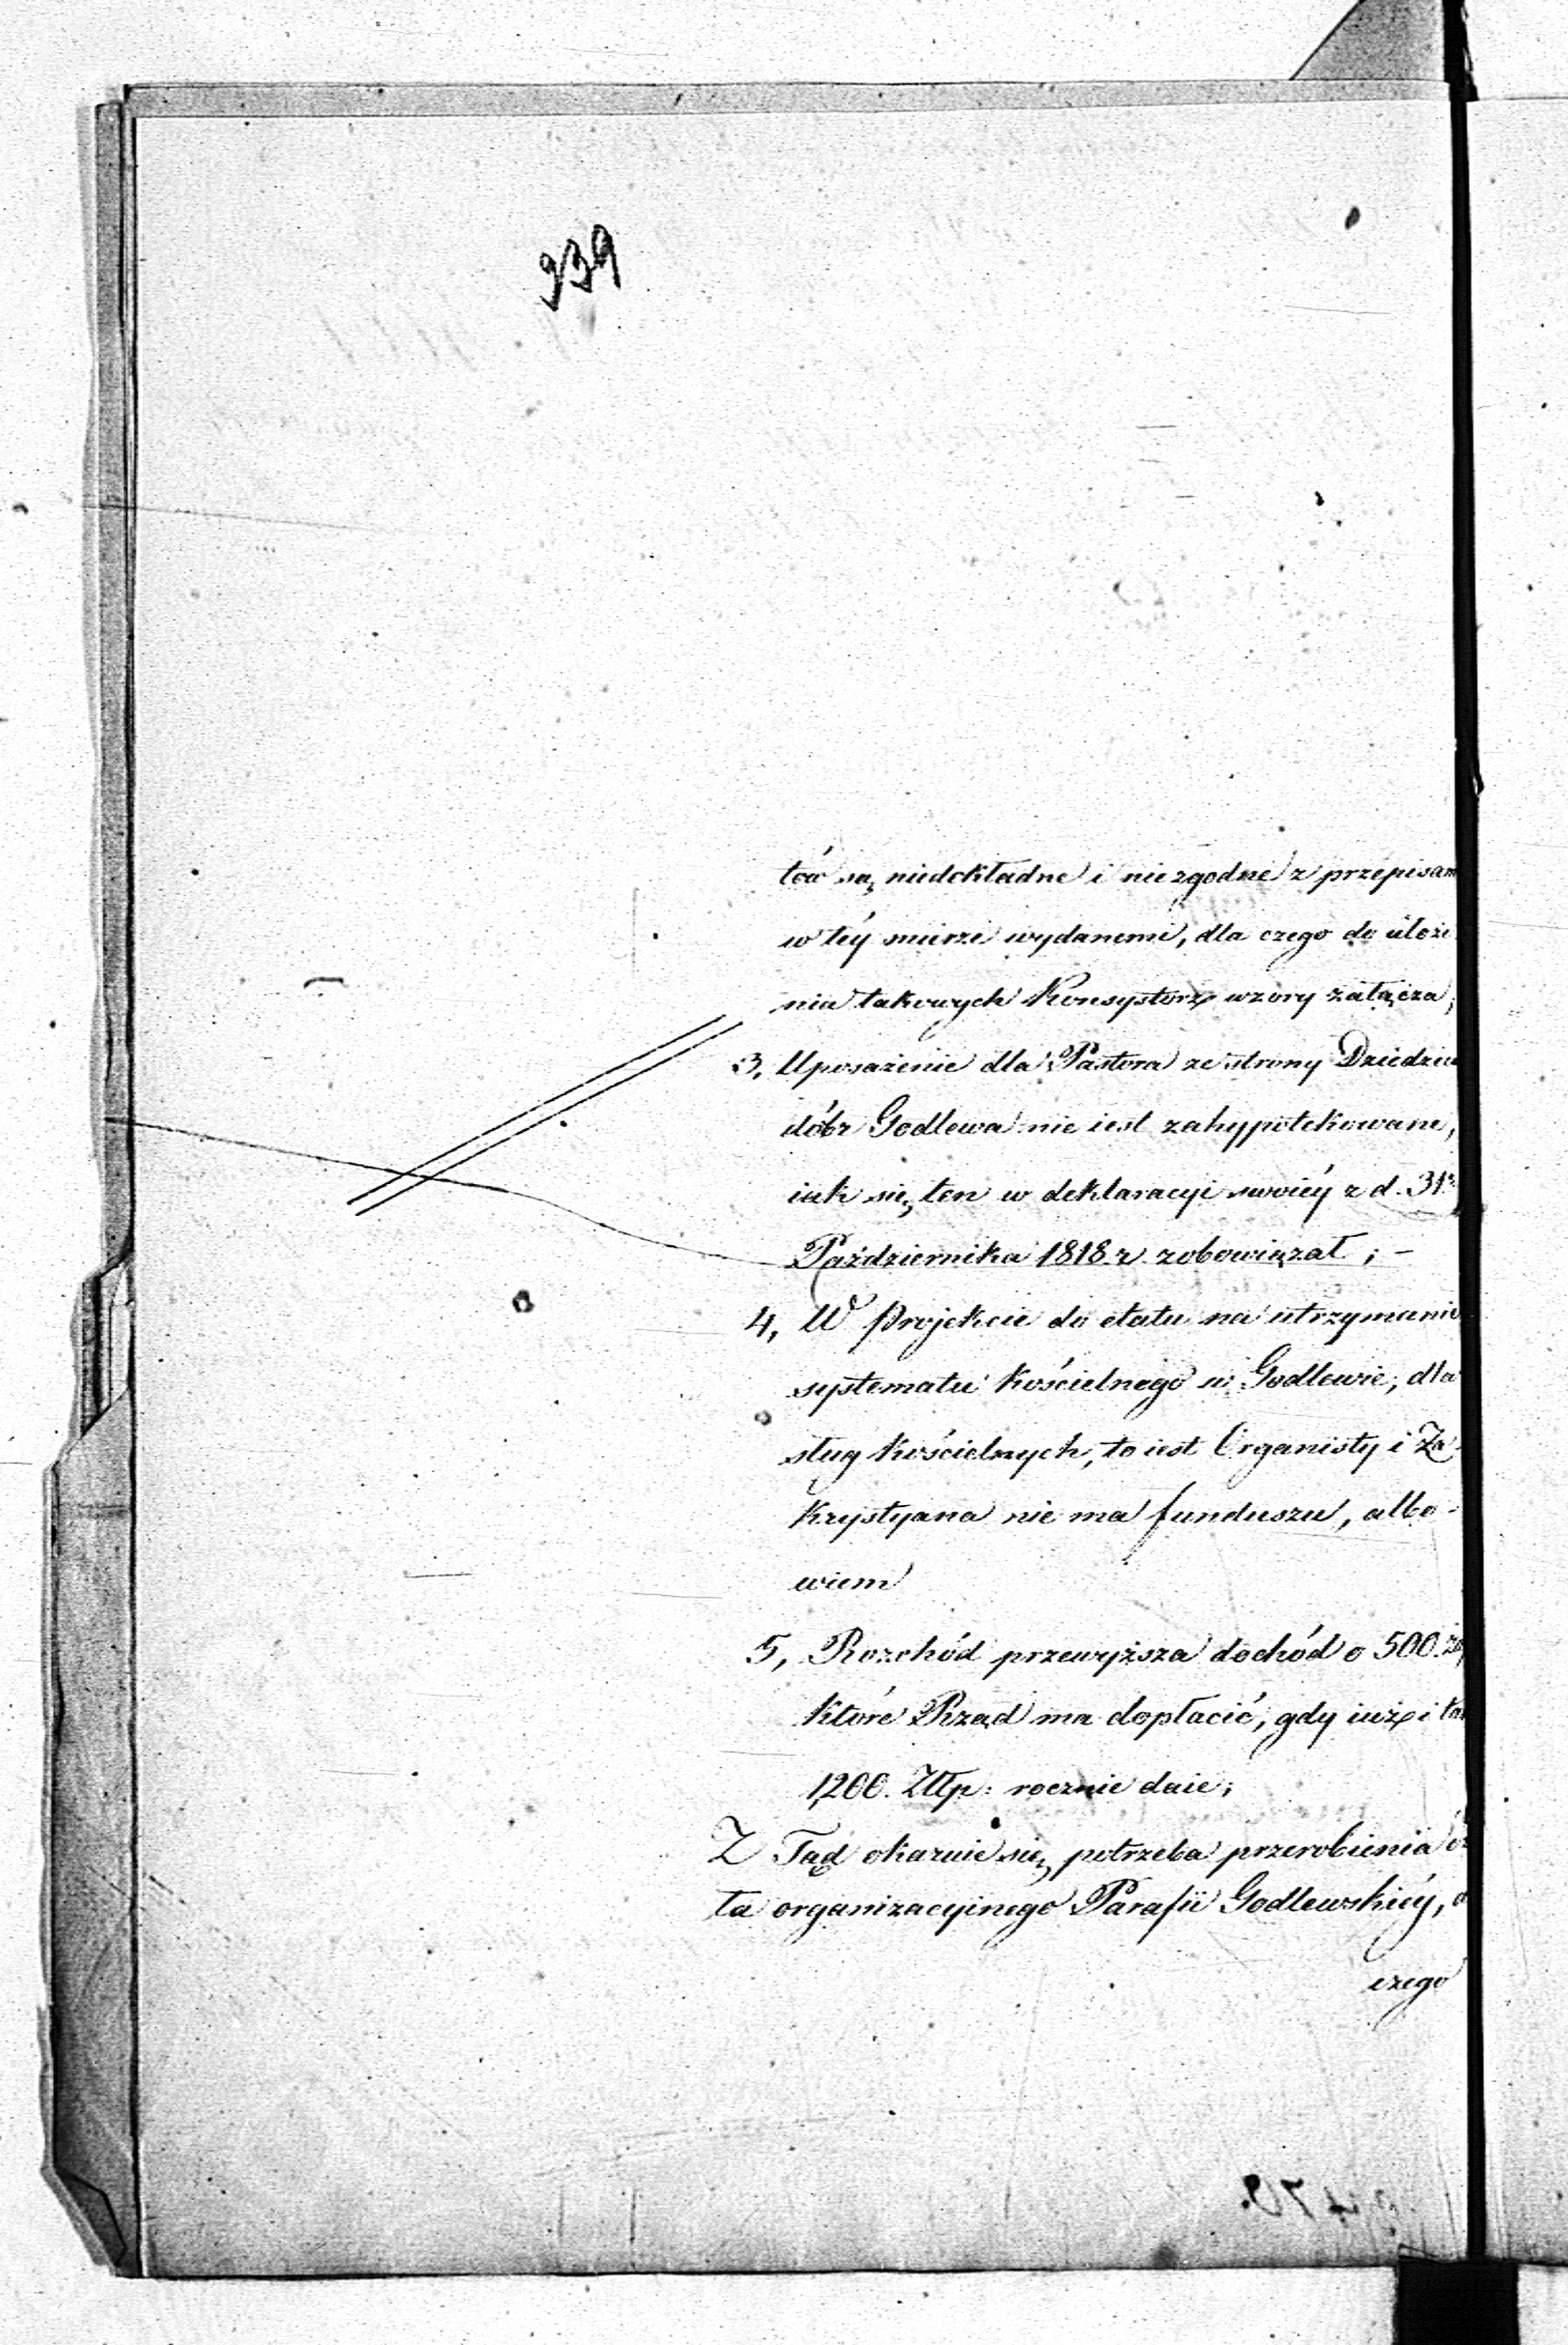 939
tów są niedokładne i niezgodne z przepisam
w téy mierze wydanemi, dla czego do ułoże
nia takowych Konsystorz wzory załącza;
3, Uposażenie dla Pastora ze strony Dziedzica
dóbr Godlewa nie iest zahypotekowane,
iak się ten w deklaracyi swoiéy z d. 31
Października 1818 r. zobowiązał; –
4, W projekcie do etatu na utrzymanie
systematu kościelnego w Godlewie, dla
sług kościelnych, to iest Organisty i Za
krystyana nie ma funduszu, albo-
wiem
5, Rozchód przewyższa dochód o 500.
które Rząd ma dopłacić, gdy iuż i tak
1,200. Złłp: rocznie daie;
Z Tąd okazuie się potrzeba przerobienia
ta organizacyinego Parafii Godlewskiéy,
czego